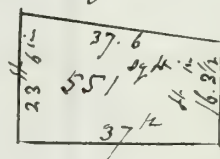 37.6
23 ft 6 in
551 sq ft
16.3 ½ ft
37 ft